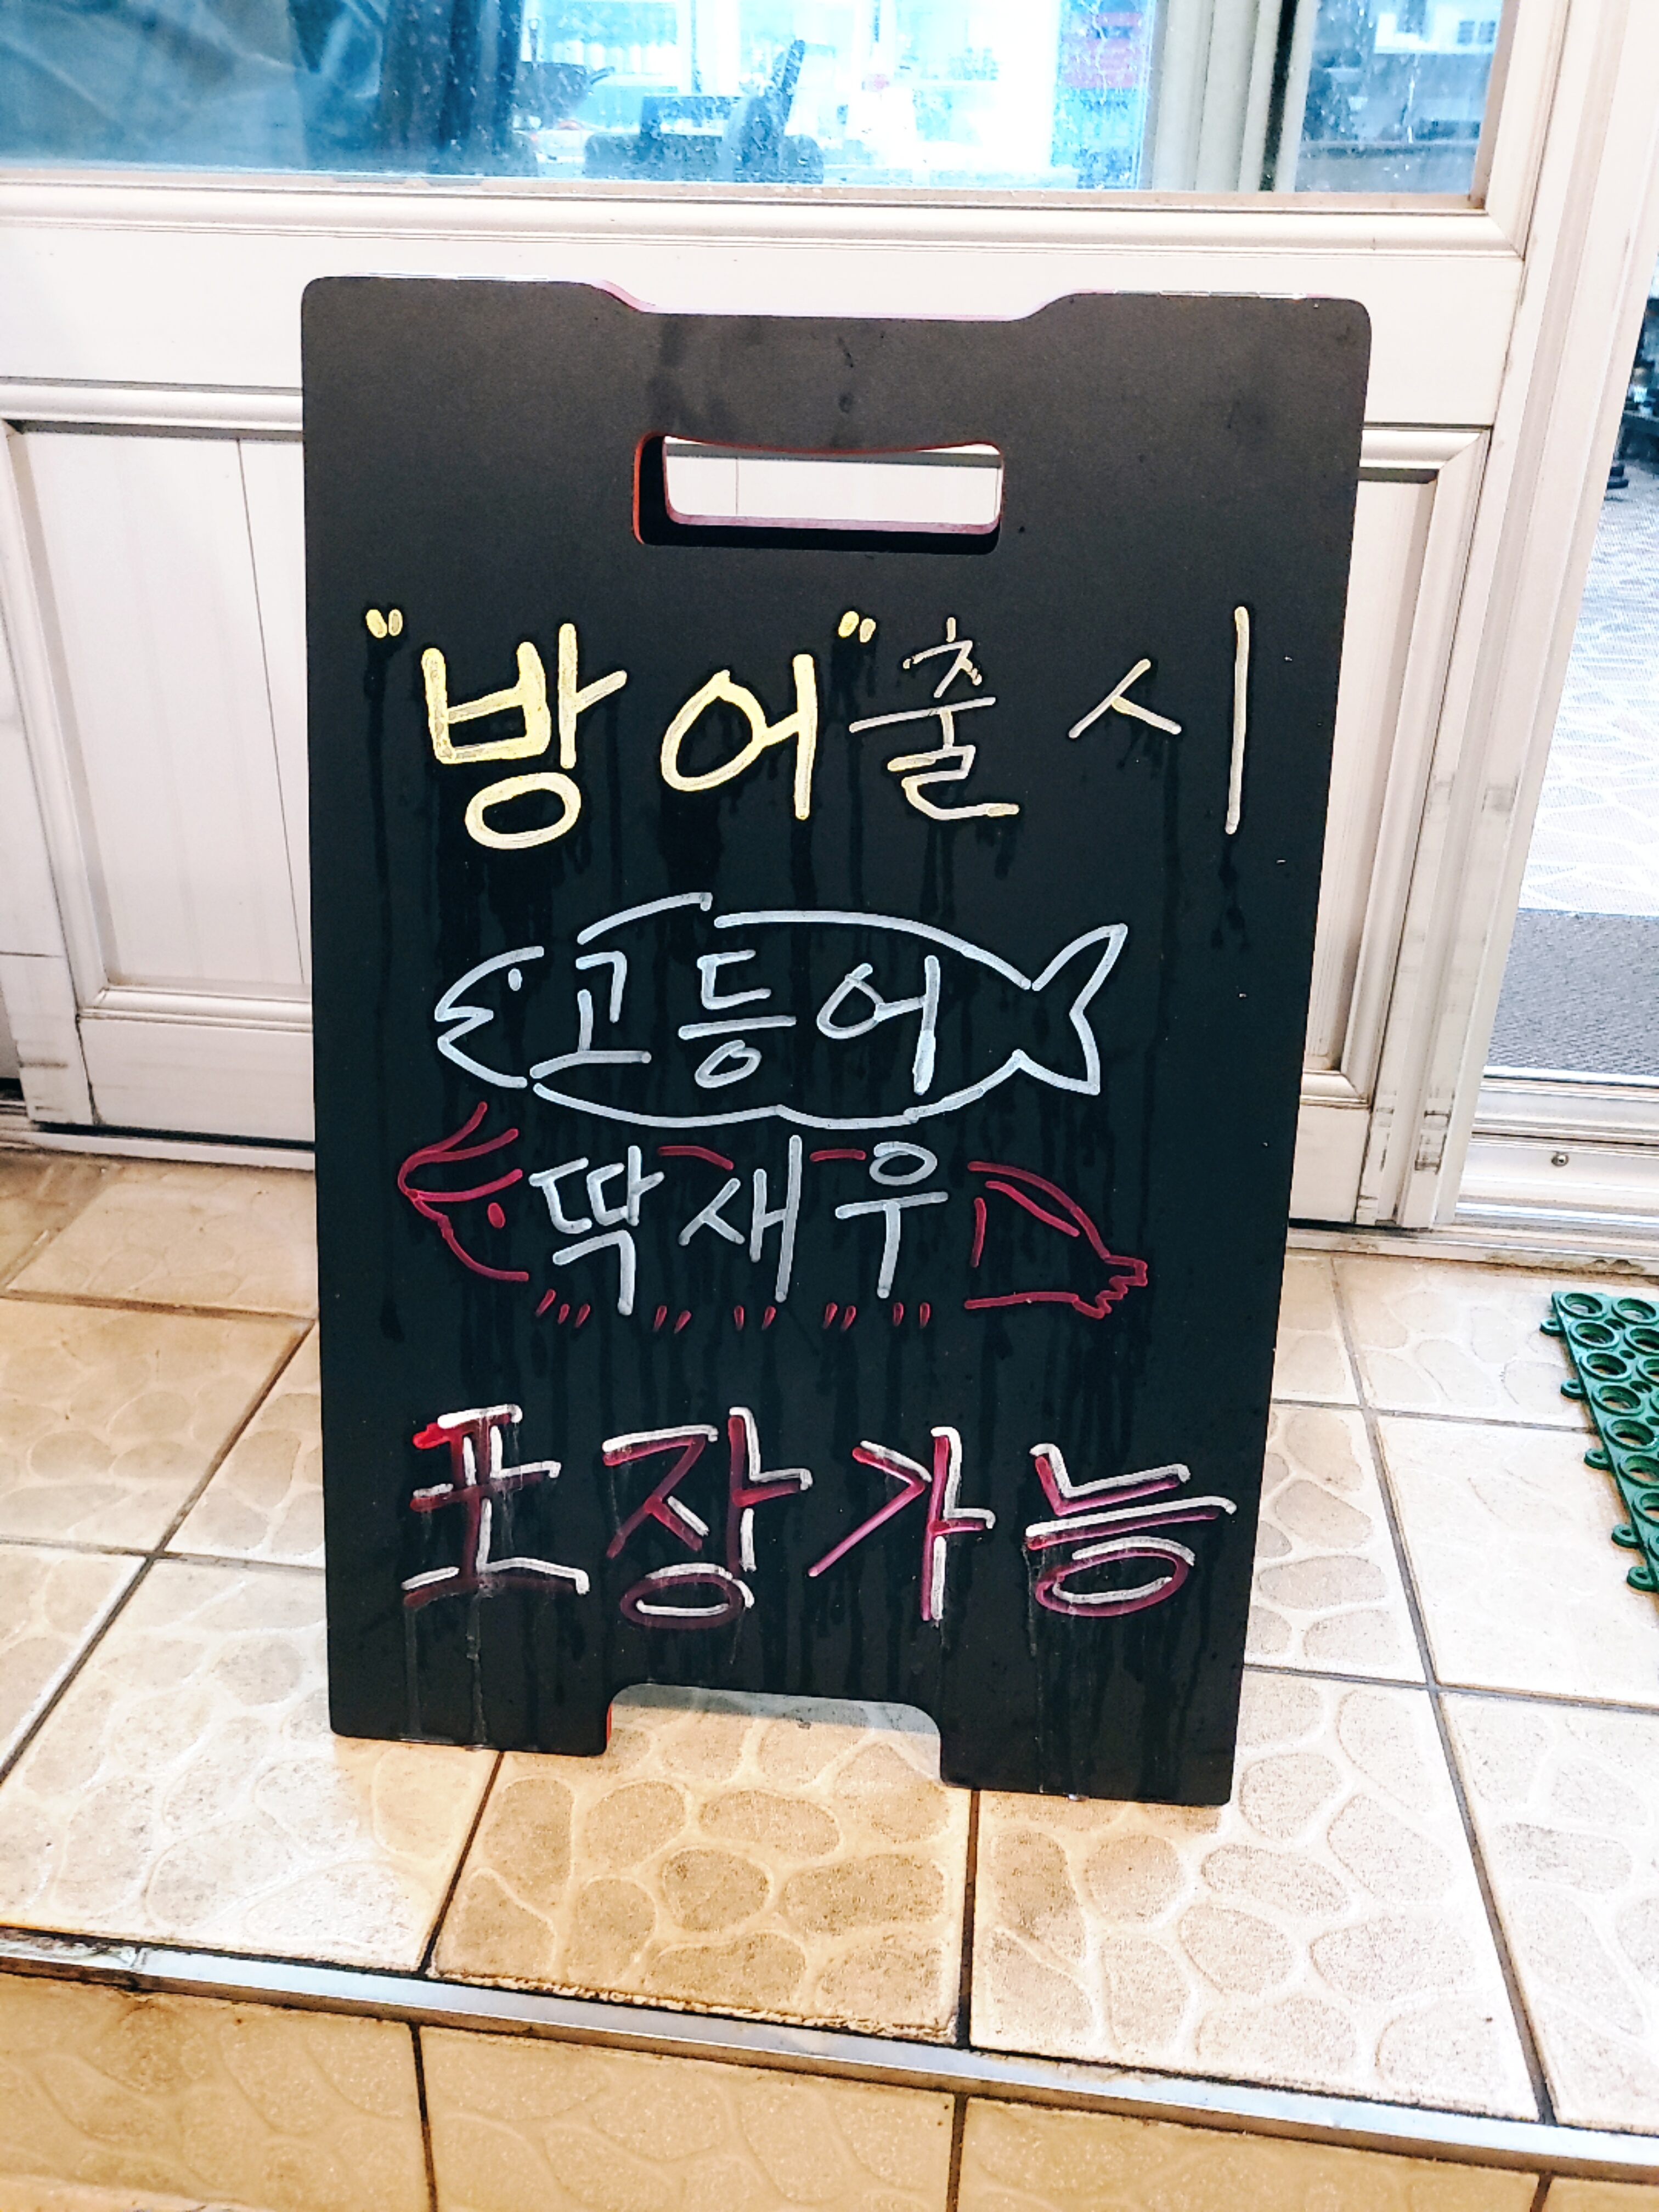 "방어" 출시
고등어
딱새우
포장가능